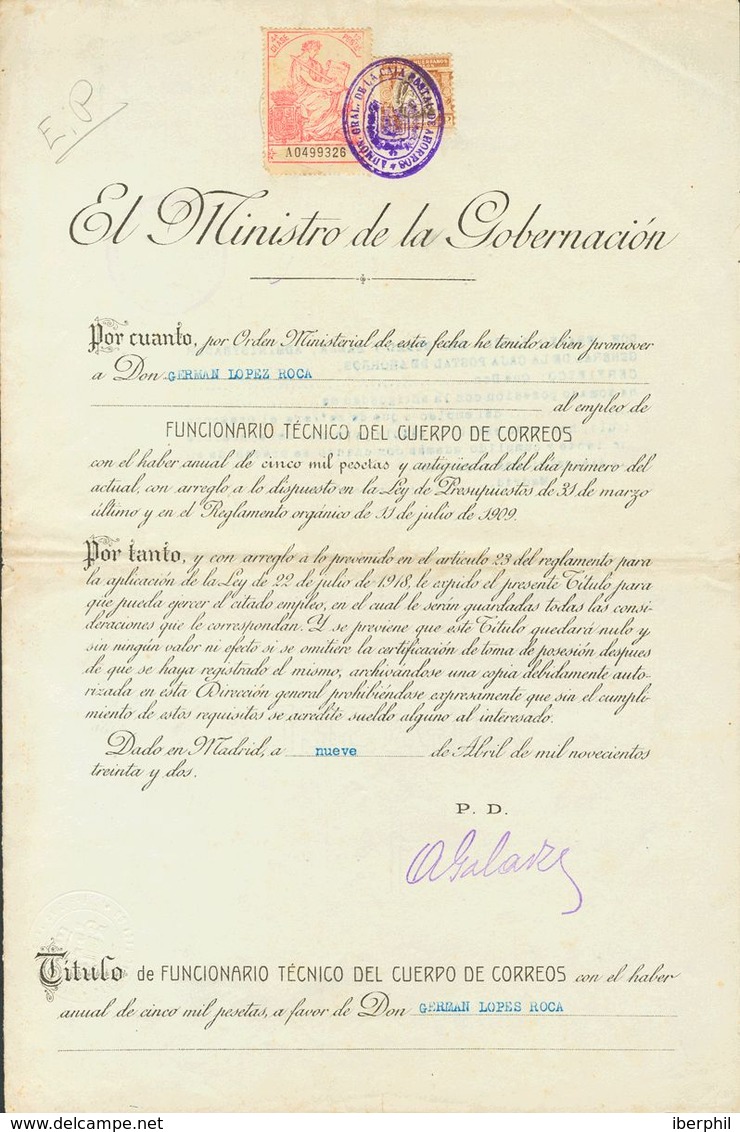 E.P
CLASE
A0499326
ADMÓN. GRAL. DE LA CAJA POSTAL DE AHORROS
El Ministro de la Gobernación
Por cuanto, por Orden Ministerial de esta fecha he tenido a bien promover
a Don GERMAN LOPEZ ROCA
al empleo de
FUNCIONARIO TÉCNICO DEL CUERPO DE CORREOS
con el haber anual de cinco mil pesetas y antigüedad del día primero del
actual, con arreglo a lo dispuesto en la Ley de Presupuestos de 31 de marzo
último y en el Reglamento orgánico de 11 de julio de 1909.
Por tanto, y con arreglo a lo prevenido en el artículo 23 del reglamento para
la aplicación de la Ley de 22 de julio de 1918, le expido el presente Título para
que pueda ejercer el citado empleo, en el cual le serán guardadas todas las consi-
deraciones que le correspondan. Y se previene que este Título quedará nulo y
sin ningún valor ni efecto si se omitiere la certificación de toma de posesión despues
de que se haya registrado el mismo, archivándose una copia debidamente auto-
rizada en esta Dirección general prohibiéndose expresamente que sin el cumpli-
miento de estos requisitos se acredite sueldo alguno al interesado.
Dado en Madrid, a nueve de Abril de mil novecientos
treinta y dos.
P. D.
Título de FUNCIONARIO TÉCNICO DEL CUERPO DE CORREOS con el haber
anual de cinco mil pesetas, a favor de Don GERMAN LOPES ROCA
www.delcampe.net
iberphil